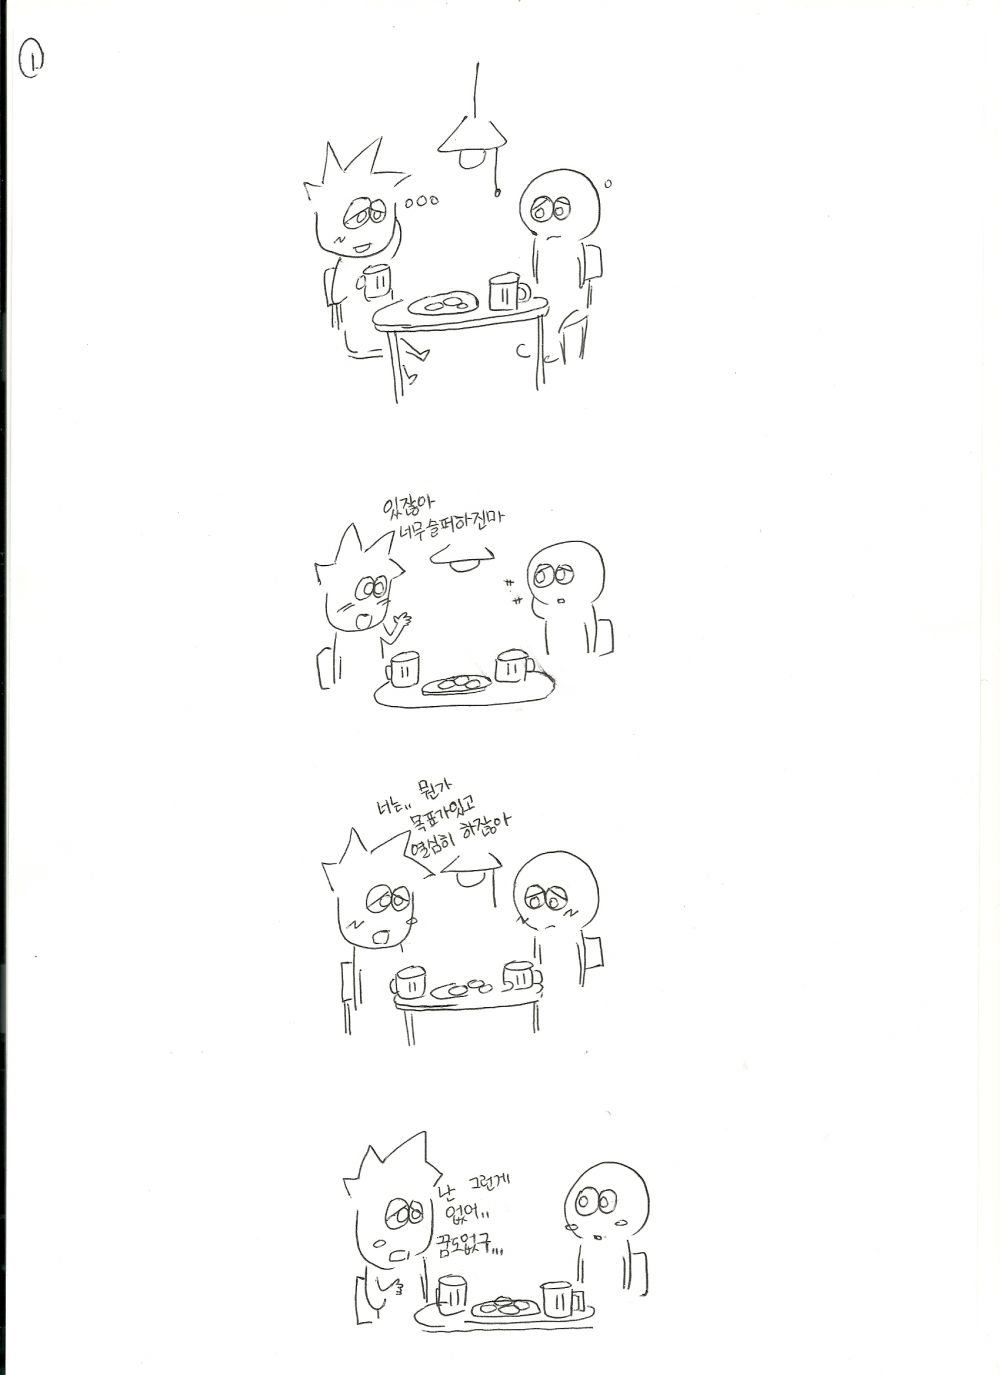 ①
있잖아
너무슬퍼하진마
너는.. 뭔가
목표가있고
열심히 하잖아
난 그런게
없어..
꿈도없구...